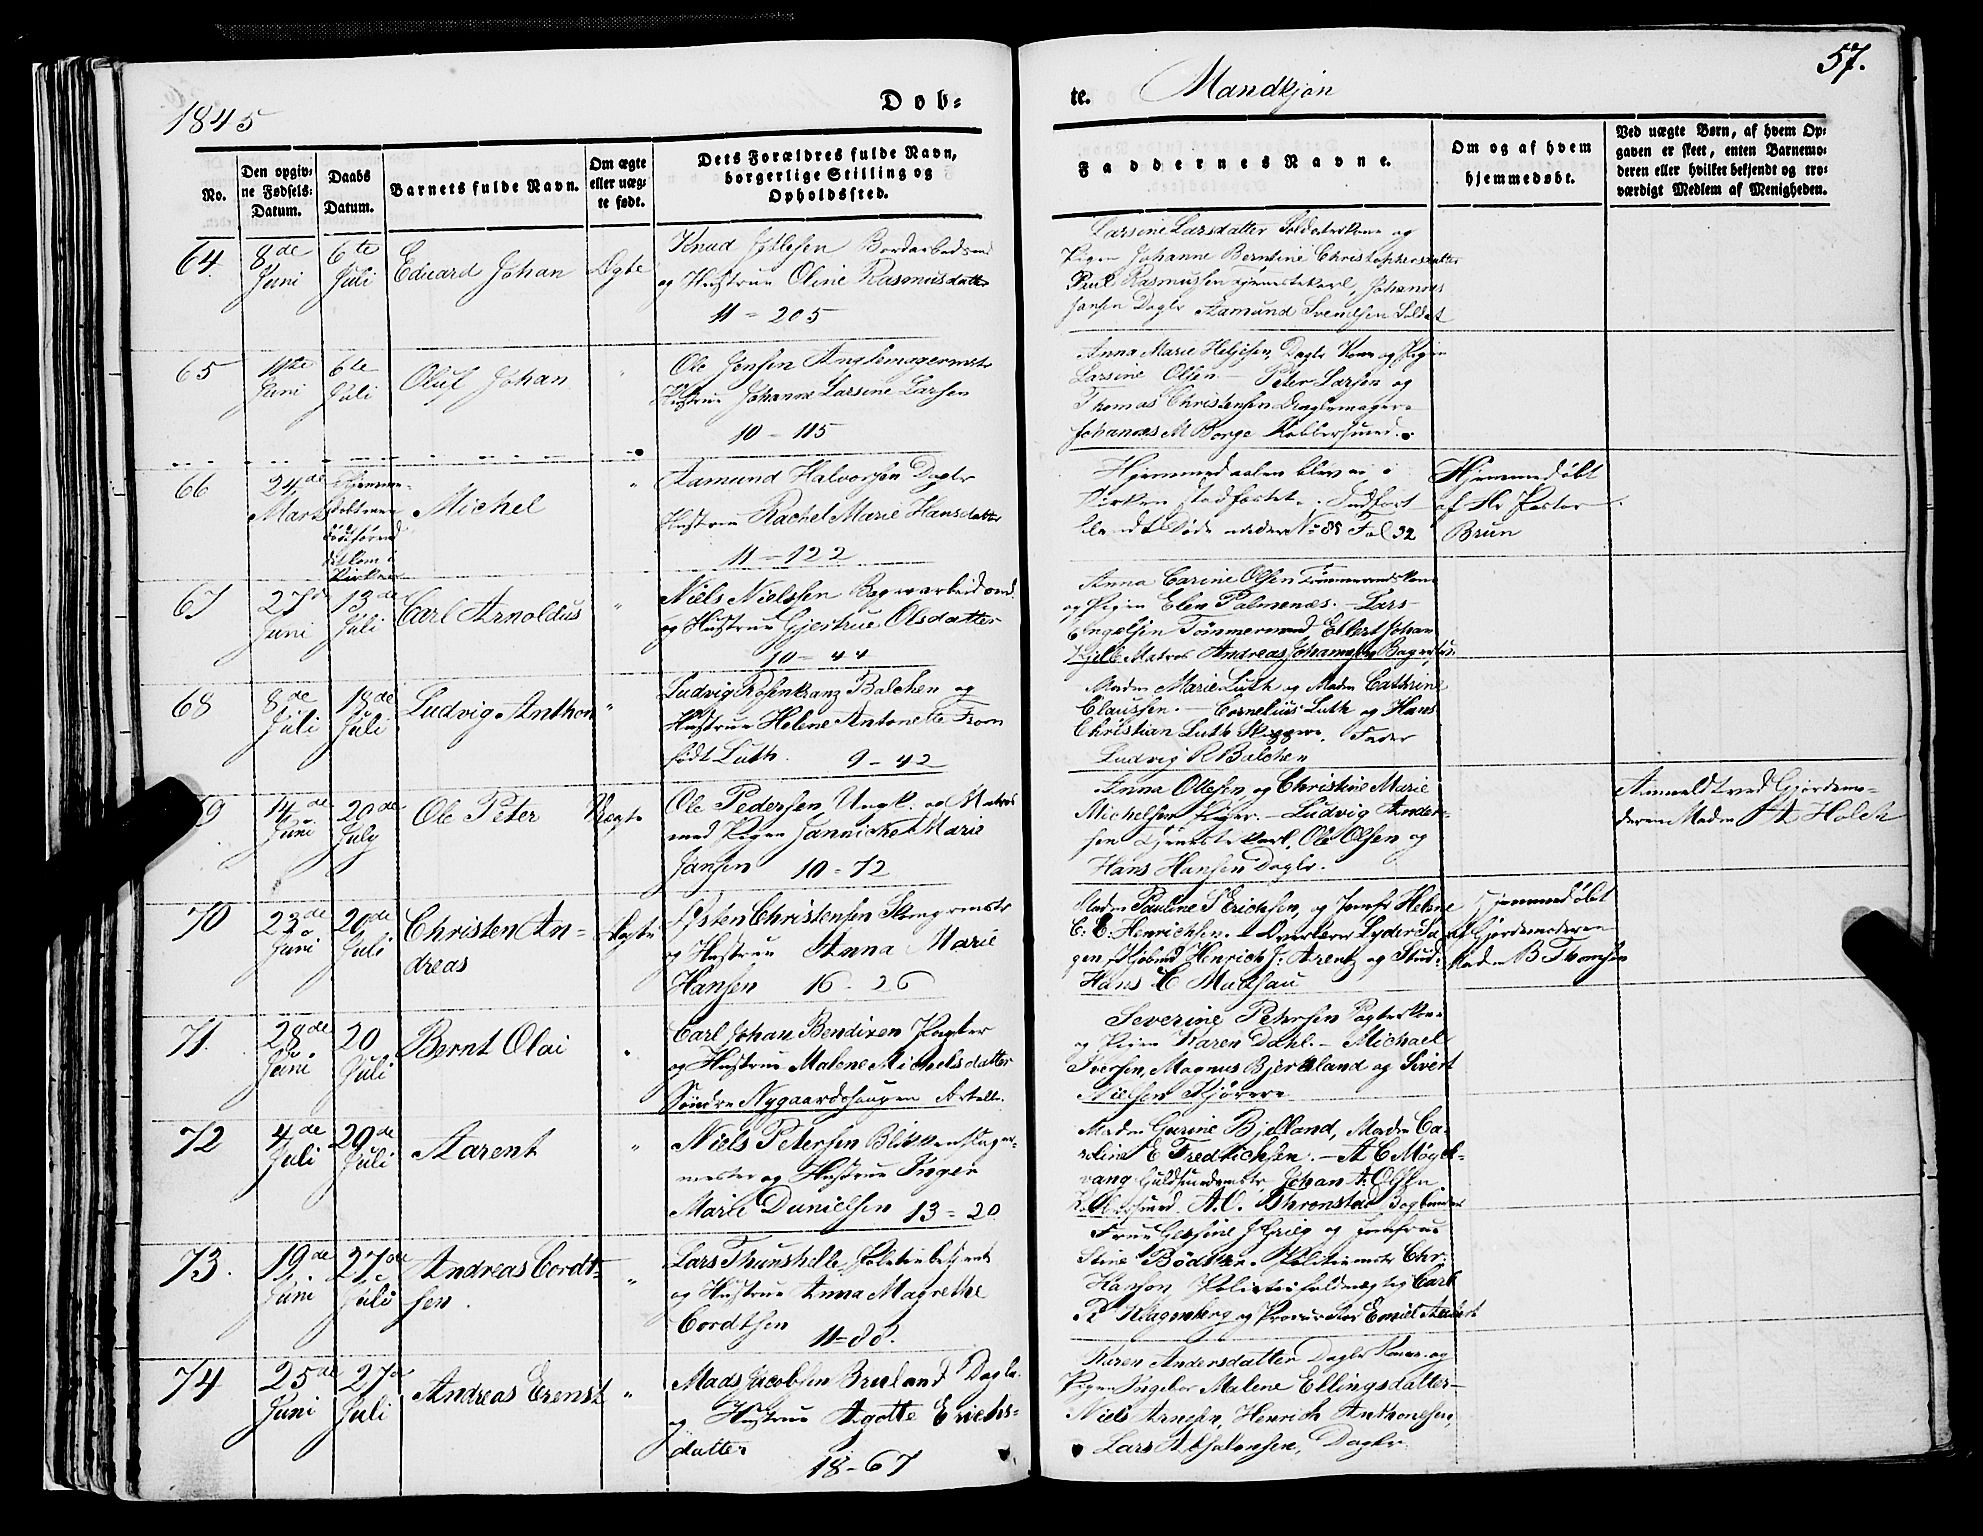 57.
1845
Døb-
te. Mandkjøn
No.
Den opgiv-
ne Fødsels-
Datum.
Daabs
Datum.
Barnets fulde Navn.
Om ægte
eller uæg-
te født.
Dets Forældres fulde Navn,
borgerlige Stilling og
Opholdssted.
Faddernes Navne.
Om og af hvem
hjemmedøbt.
Ved uægte Børn, af hvem Op-
gaven er skeet, enten Barnemo-
deren eller hvilket bekjendt og tro-
værdigt Medlem af Menigheden.
64.
8de
Juni
6te
Juli
Eduard Johan
Ægte
Knud
og Hustrue Oline Rasmusdatter
11 - 205
Larsine Larsdatter Soldaterkone og
Pigen Johanne Berntine Christophersdatter
Poul Rasmussen Tjenestekarl, Johannes
Jansen Daglr Aamund Svendsen Soldat
65
11te
Juni
6te
Juli
Oluf Johan
"
Ole Jensen
Hustrue Johanne Larsine Larsen
10 - 115
Anna Marie Heljesen, Daglr Kone og Pigen
Larsine Olsen - Peter Larsen og
Thomas Christensen
Johannes M Borge Kobbersmed.
66
24de
Marts
Michel
"
Aamund Halvorsen Daglr
Hustrue Rachel Marie Hansdatter
11 - 122
Hjemmedaaben blev ei i
Kirken stadfæstet. Indført
blandt Døde under No 85 Fol 32
Hjemmedøbt
af Hr Pastor
Brun
67
27de
Juni
13de
Juli
Carl Arnoldus
"
Niels Nielsen Bagerarbeidsmd
og Hustrue Gjertrue Olsdatter
10 - 44
Anna Carine Olsen Tømmermandskone
og Pigen Elen Palmenæs. - Lars
Engelsen Tømmermand Ellert Johan
Kjille Matros Andreas Johannesen
68
8de
Juli
18de
Juli
Ludvig Anthon
"
Ludvig Rosenkranz Balchen og
Hustrue Helene Antonette From
født Luth. 9 - 42
Madm Marie Luth og Madm Cathrine
Claussen. - Cornelius Luth og Hans
Christian Luth Skippere. Fader
Ludvig R Balchen
14de
Juni
20de
July
Ole Peter
Uægte
Ole Pedersen Ungk. og Matros
med Pigen Jannicke Marie
Jansen 10 - 72
Anna Ollesen og Christine Marie
Michelsen Piger. - Ludvig Ander-
sen Tjenestekarl, Ole Olsen og
Hans Hansen Daglr.
Anmeldt ved Gjordemo-
deren Madm A Holck
70
23de
Juni
20de
Juli
Christen An-
dreas
Ægte
Østen Christensen
og Hustrue Anna Marie
Hansen 16 - 26
Madm Pauline S Erichsen, og Jomfr Helene
C. E. Henrichsen. - Overlærer Lyder Sa-
gen, Kjøbmd Henrich J. Arentz og Stud:
Hans C
Hjemmedøbt
af Gjordemoderen
Madm B Thomsen
71.
28de
Juni
20
Juli
Bernt Olai
"
Carl Johan Bendixen Pagter
og Hustrue Malene Michelsdatter
Søndre Nygaardshaugen Årstadt.
Severine Petersen Pagterkone
og Pigen Karen Dahl. - Michael
Iversen, Magnus Bjerkeland og Sivert
Nielsen Kjørere
72
4de
Juli
20de
Juli
Aarent
"
Niels Petersen Blikkenslager-
mester og Hustrue Inger
Marie Danielsen 13 - 20
Madm Gurine Bjelland, Madm Ca-
roline E Fredrichsen. - A C Møgel-
vang Guldsmedmstr Johan A. Olsen
A. C. Thronstad Bogbinder
73.
19de
Juni
27de
Juli
Andreas Cordt-
sen.
"
Lars Thunshelle, Politiebetjent
og Hustrue Anna Magrethe
Cordtsen
11 - 88.
Frue Gesine J Grieg og Jomfrue
Stine Bødker. Politiemstr Chr:
Hanson, Politiefuldmægtig Carl
R Hagenberg og Procurator Emiel Aubert
74
25de
Juni
27de
Juli
Andreas Erenst
"
Mads Jacobsen Bruland Daglr.
og Hustrue Agatte Erichs-
datter
18 - 67
Karen Andersdatter Daglr Kone og
Pigen Ingebor Malene Ellingsdatter -
Niels Arnesen, Henrich Anthonesen,
Lars Absalonsen, Daglr.